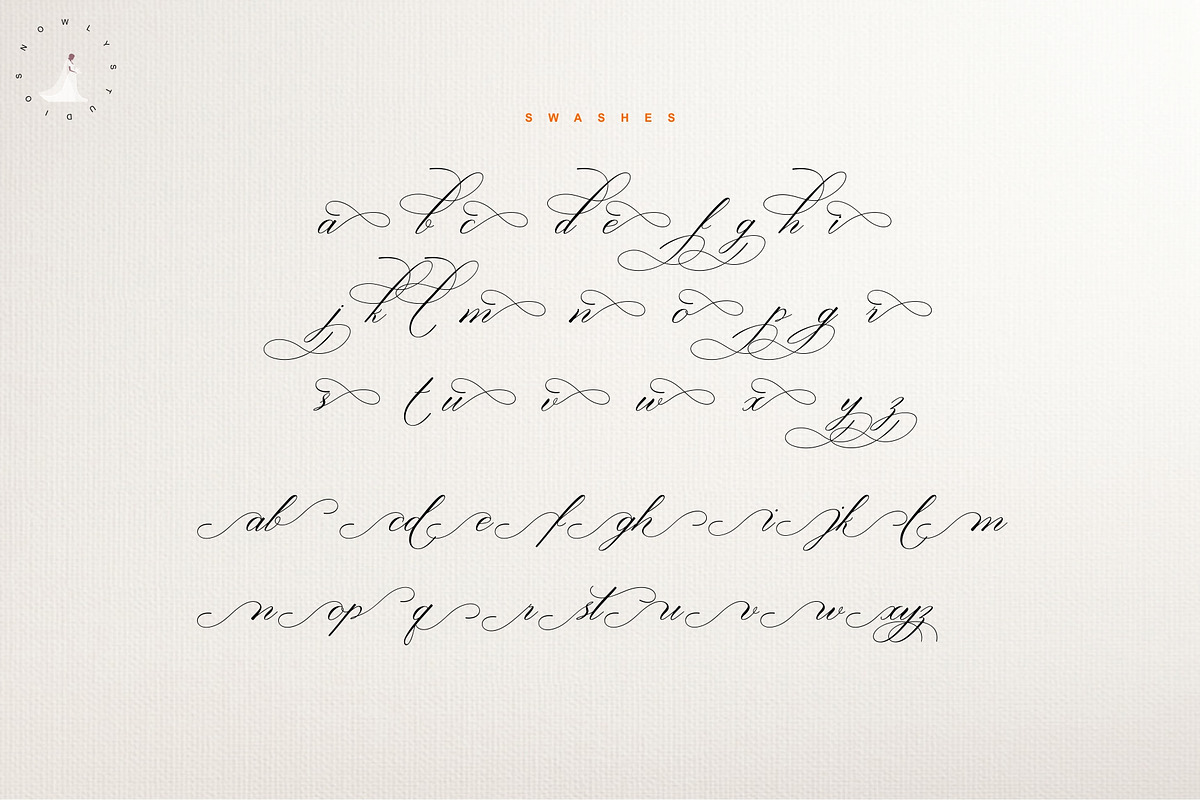 SNOWLYSTUDIOS
SWASHES
a b c d e f g h i
j k l m n o p g r
s t u v w x y z
ab cd e f gh i jk l m
n op q r st u v w xyz